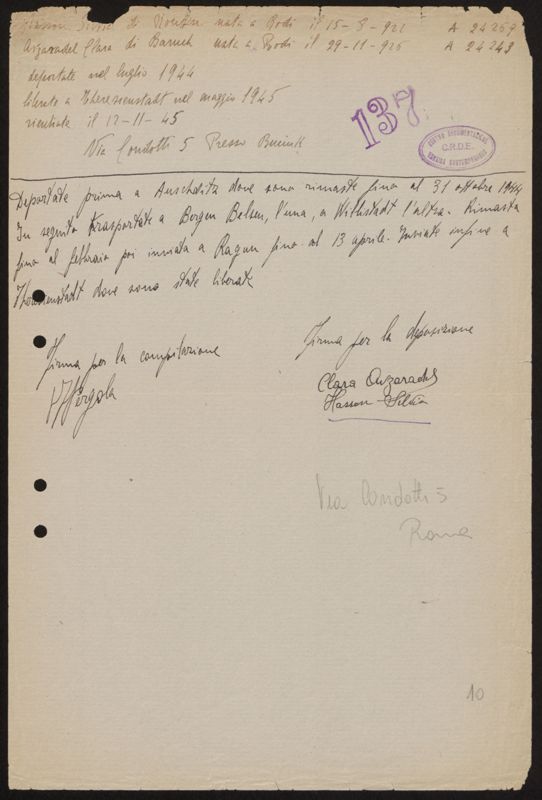 di nata a Rodi il 15-8-921 A 24269
Avzaradel Clara di Baruch nata a Rodi il 29-11-926 A 24243
deportate nel luglio 1944
liberate a Theresienstadt nel maggio 1945
rientrate il 12-11-45
Via Condotti 5 Presso
137
CENTRO DOCUMENTAZIONE
C.R.D.E.
EBRAICA CONTEMPORANEA
Deportate prima a Auschwitz dove sono rimaste fino al 31 ottobre 1944
In seguito trasportate a Bergen Belsen, l'una, a l'altra. Rimasta
fino al febbraio poi inviata a Ragun fino al 13 aprile. Inviate infine a
Theresienstadt dove sono state liberate
Firma per la deposizione
Firma per la compilazione
Clara Avzaradel
Hasson Silvia
Via Condotti 5
Roma
10